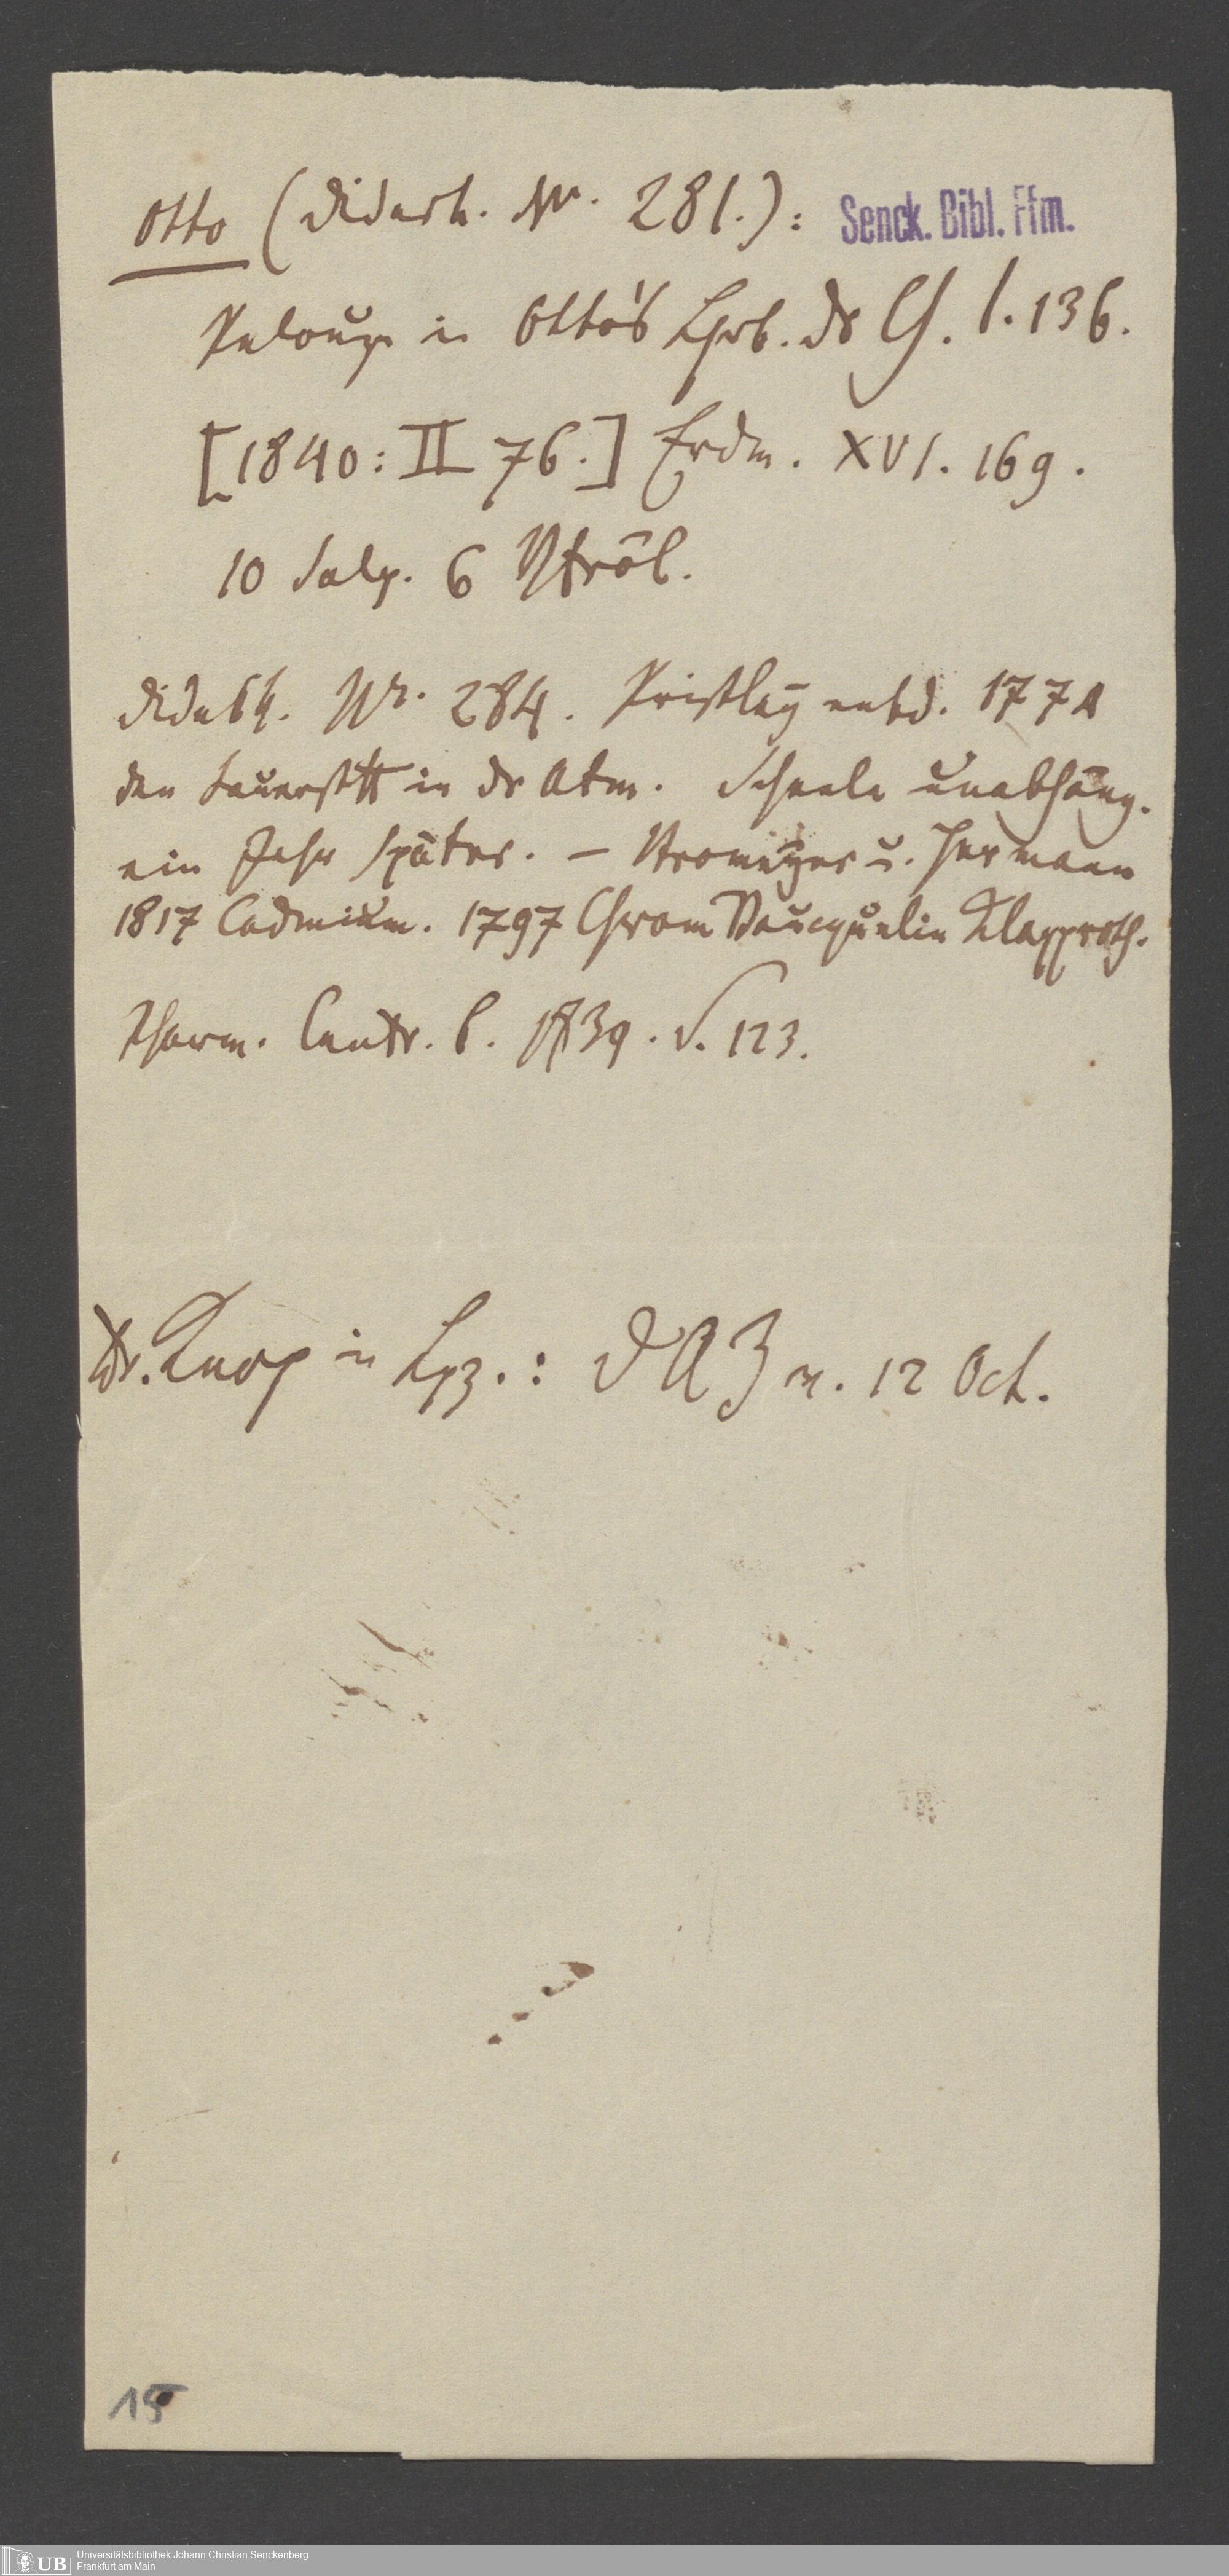 Otto (Didask. Nr. 281.):
Senck. Bibl. Ffm.
Pelouze in Otto's Lhrb. dr Ch. I. 136.
[1840: II 76.] Erdm. XVI. 169.
10 Salp. 6 Vtröl.
Didask. Nr. 284. Pristley entd. 1774
den Sauerstff in dr Atm. Scheele unabhäng.
ein Jahr später. — Stromeyer u. Hermann
1817 Cadmium. 1797 Chrom Vaucquelin Klapproth.
Pharm. Centr. B. 39. S. 123.
Dr. Knop in Lpz.: D A Z v. 12 Oct.
15
UB Universitätsbibliothek Johann Christian Senckenberg
Frankfurt am Main